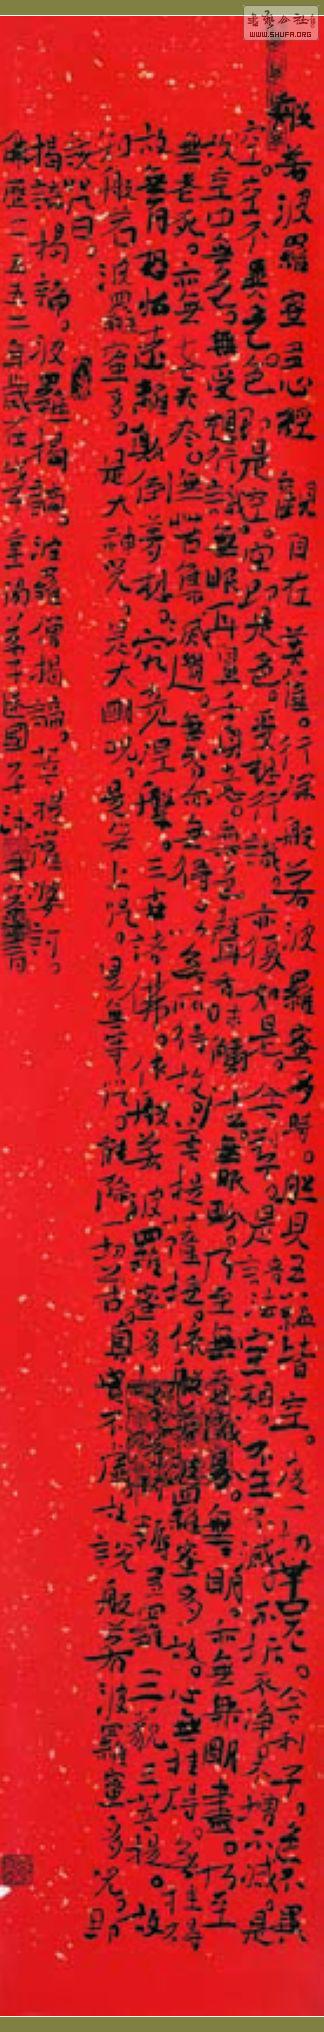 WWW.SHUFA.ORG
般若波羅蜜多心経 觀自在菩薩。行深般若波羅蜜多時。照見五蘊皆空。度一切苦厄。舍利子。色不異
空。空不異色。色即是空。空即是色。受想行識。亦復如是。舍利子。是諸法空相。不生不滅。不垢不淨。不增不減。是
故空中無色。無受想行識。無眼耳鼻舌身意。無色聲香味觸法。無眼界。乃至無意識界。無無明。亦無無明盡。乃至
無老死。亦無老死盡。無苦集滅道。無智亦無得。以無所得故。菩提薩埵。依般若波羅蜜多故。心無挂礙。無挂礙
故。無有恐怖。遠離顛倒夢想。究竟涅槃。三世諸佛。依般若波羅蜜多故。得阿耨多羅三藐三菩提。故
知般若波羅蜜多。是大神咒。是大明咒。是無上咒。是無等等咒。能除一切苦。真實不虛。故說般若波羅蜜多咒。即
說咒曰。
揭諦揭諦。波羅揭諦。波羅僧揭諦。菩提薩婆訶。
佛歷二五五二年歲在